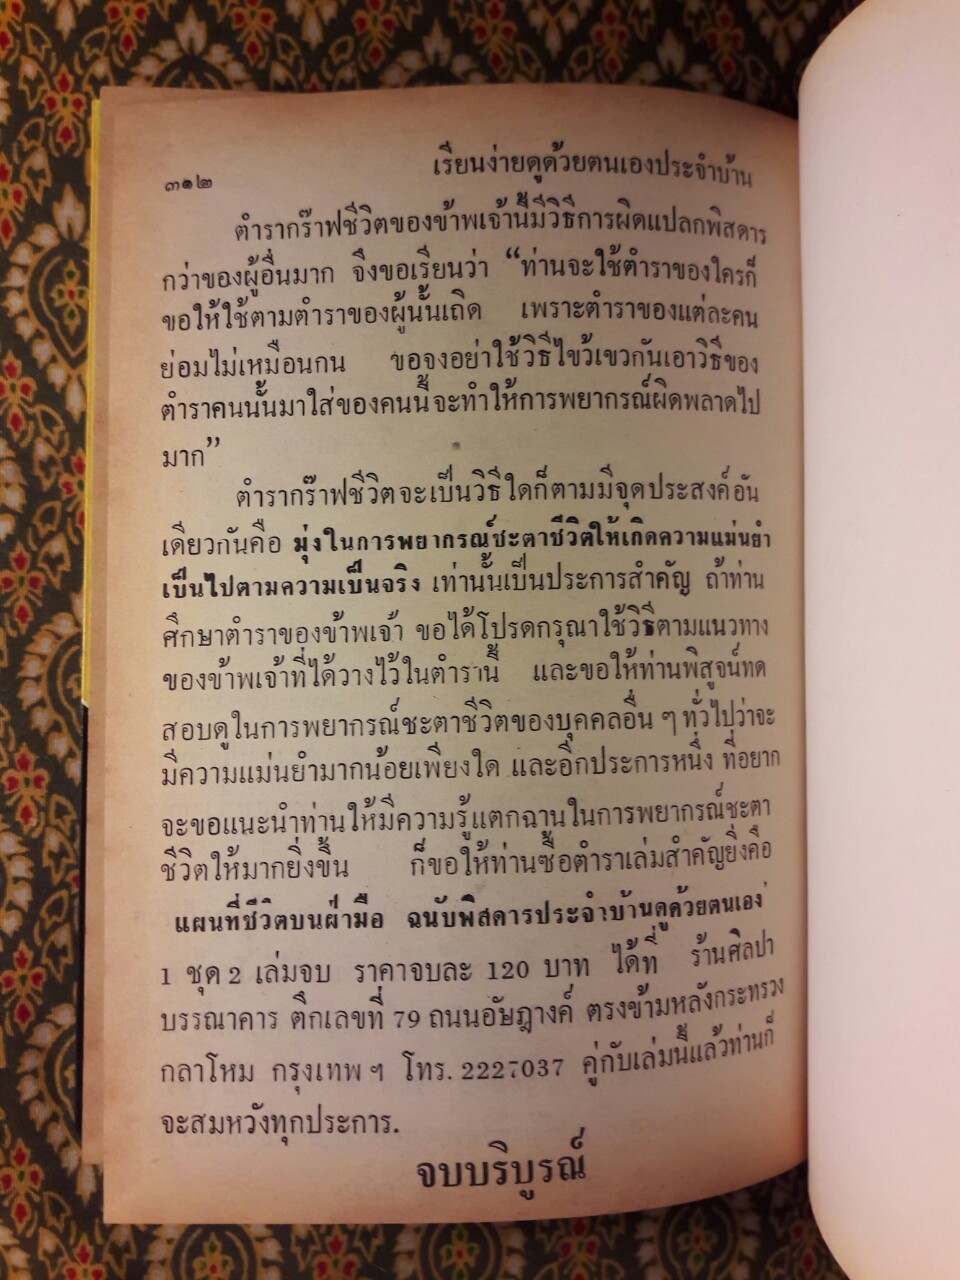 ๓๑๒ เรียนง่ายดูด้วยตนเองประจำบ้าน
ตำรากร๊าฟชีวิตของข้าพเจ้านี้มีวิธีการผิดแปลกพิสดาร
กว่าของผู้อื่นมาก จึงขอเรียนว่า “ท่านจะใช้ตำราของใครก็
ขอให้ใช้ตามตำราของผู้นั้นเถิด เพราะตำราของแต่ละคน
ย่อมไม่เหมือนกน ขอจงอย่าใช้วิธีไขว้เขวกันเอาวิธีของ
ตำราคนนั้นมาใส่ของคนนี้จะทำให้การพยากรณ์ผิดพลาดไป
มาก”
ตำรากร๊าฟชีวิตจะเป็นวิธีใดก็ตามมีจุดประสงค์อัน
เดียวกันคือ มุ่งในการพยากรณ์ชะตาชีวิตให้เกิดความแม่นยำ
เป็นไปตามความเป็นจริง เท่านั้นเป็นประการสำคัญ ถ้าท่าน
ศึกษาตำราของข้าพเจ้า ขอได้โปรดกรุณาใช้วิธีตามแนวทาง
ของข้าพเจ้าที่ได้วางไว้ในตำรานี้ และขอให้ท่านพิสูจน์ทด
สอบดูในการพยากรณ์ชะตาชีวิตของบุคคลอื่น ๆ ทั่วไปว่าจะ
มีความแม่นยำมากน้อยเพียงใด และอีกประการหนึ่ง ที่อยาก
จะขอแนะนำท่านให้มีความรู้แตกฉานในการพยากรณ์ชะตา
ชีวิตให้มากยิ่งขึ้น ก็ขอให้ท่านซื้อตำราเล่มสำคัญยิ่งคือ
แผนที่ชีวิตบนฝ่ามือ ฉนับพิสดารประจำบ้านดูด้วยตนเอง
1 ชุด 2 เล่มจบ ราคาจบละ 120 บาท ได้ที่ ร้านศิลปา
บรรณาคาร ตึกเลขที่ 79 ถนนอัษฎางค์ ตรงข้ามหลังกระทรวง
กลาโหม กรุงเทพ ฯ โทร. 2227037 คู่กับเล่มนี้แล้วท่านก็
จะสมหวังทุกประการ.
จบบริบูรณ์